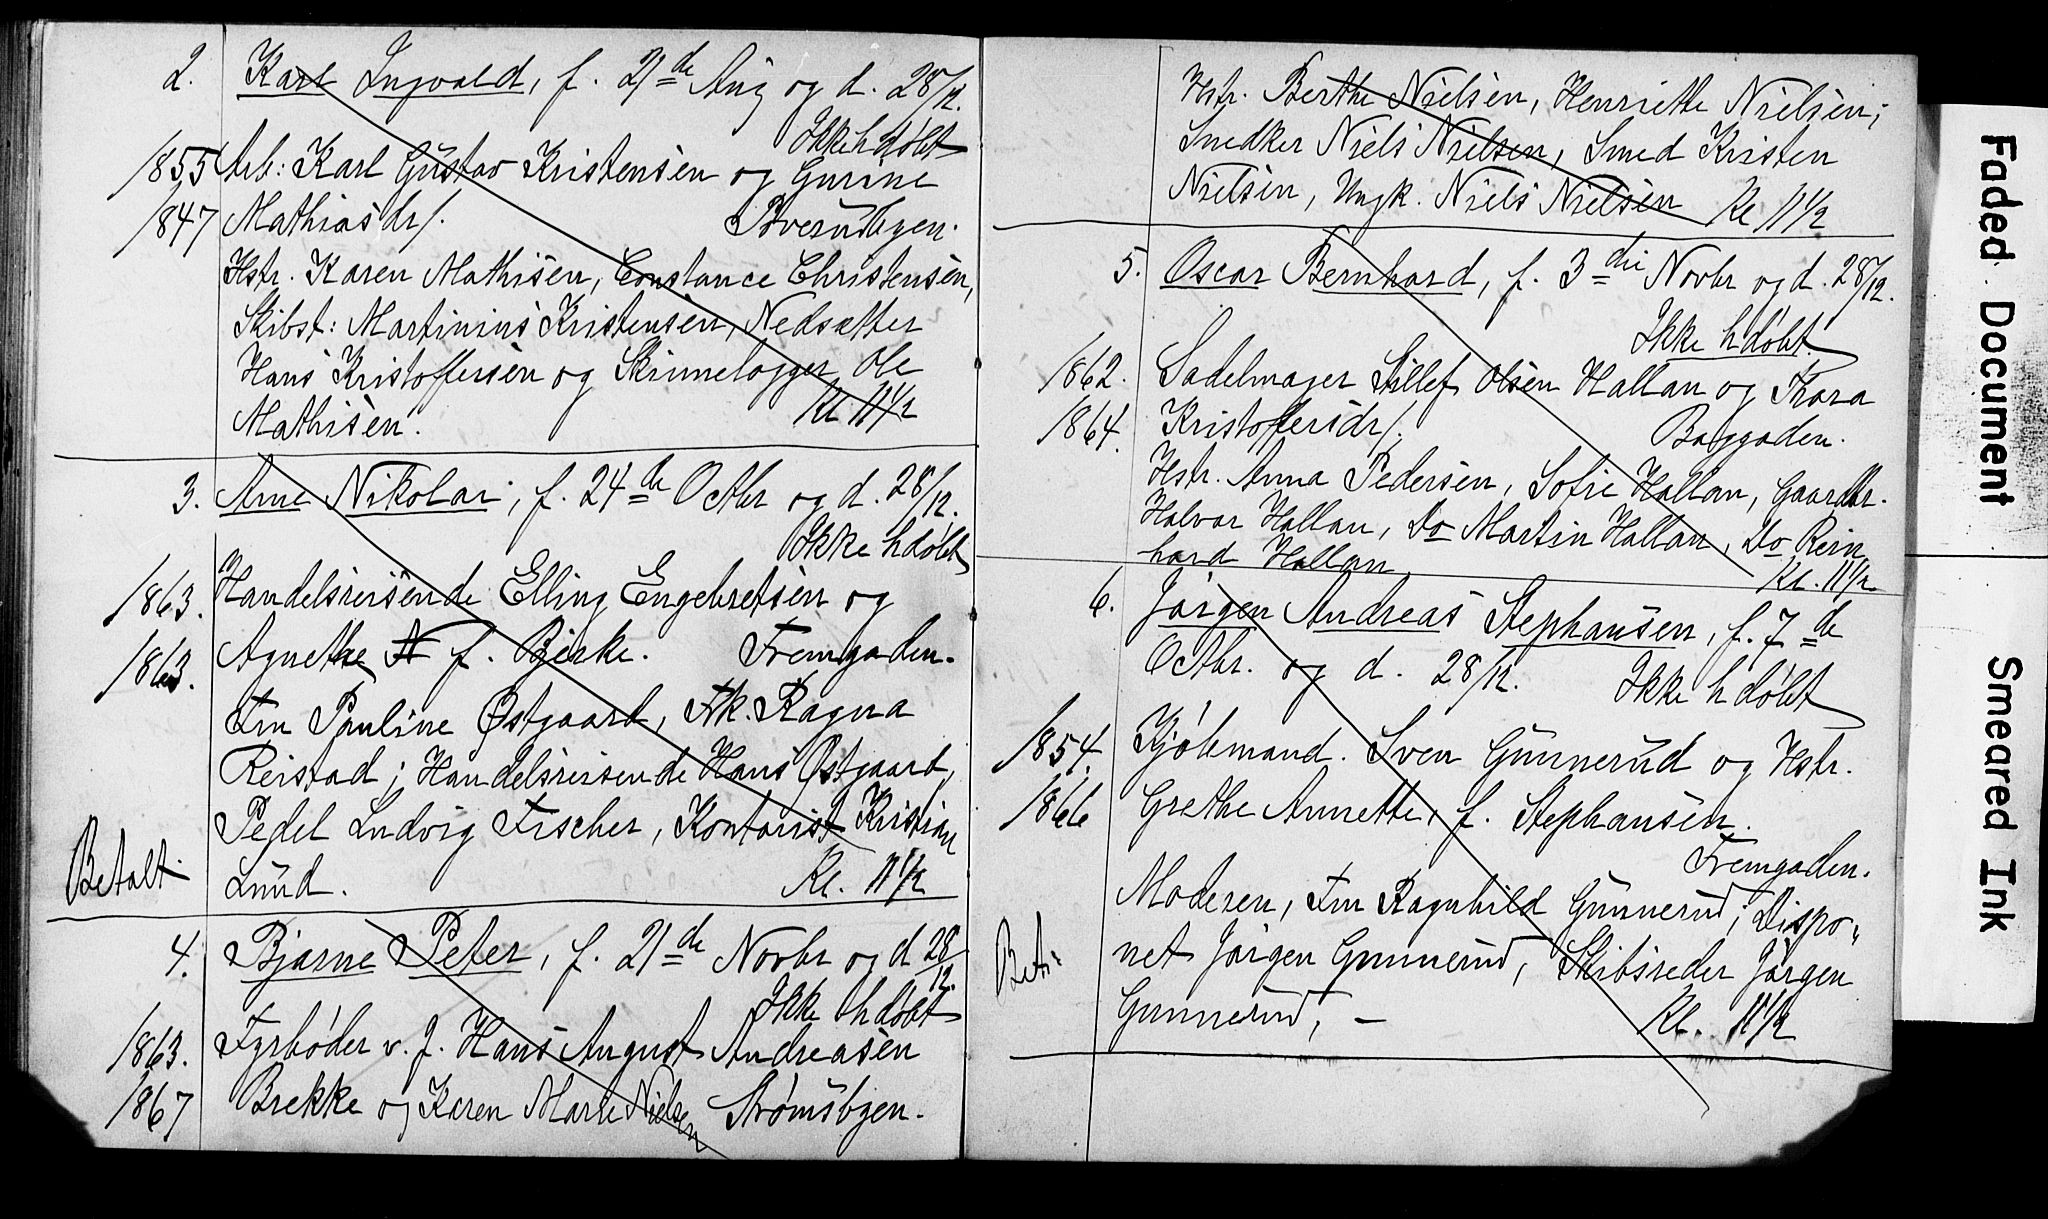 2. Karl Ingvald, f. 21de Aug og d. 28/12.
Ikke hdøbt
1855 Arb: Karl Gustav Kristensen og Gurine
1847 Mathiasdr/. Tverudbgen.
Hstr. Karen Mathisen, Constance Christensen,
Skibst: Martinius Kristensen, Nedsætter
Hans Kristoffersen og Skinnelægger Ole
Mathisen. Kl. 11 1/2
3. Arne Nikolai, f. 24de Octbr og d. 28/12.
Ikke hdøbt
1863. Handelsreisende Elling Engebretsen og
1863. Agnethe f. Bjerke. Fremgaden.
Fru Pauline Østgaard, Frk. Ragna
Reistad; Handelsreisende Hans Østgaard,
Pedel Ludvig Fischer, Kontorist Kristian
Betalt Lund. Kl. 11 1/2
4. Bjarne Peter, f. 21de Novbr og d 28/12.
Ikke hdøbt
1863. Fyrbøder v. J. Hans August Andreasen
1867 Brekke og Karen Marie Nielsen Strømsbgen.
Hstr. Berthe Nielsen, Henriette Nielsen;
Snedker Niels Nielsen, Smed Kristen
Nielsen, Ungk. Niels Nielsen Kl 11 1/2
5. Oscar Bernhard, f. 3die Novbr og d. 28/12.
Ikke hdøbt.
1862. Sadelmager Sillef Olsen Hallan og Thora
1864. Kristoffersdr/. Baggaden.
Hstr. Anna Pedersen, Sofie Hallan, Gaardbr.
Halvor Hallan, Do Martin Hallan, Do Rein
hard Hallan Kl. 11 1/2
6. Jørgen Andreas Stephansen, f. 7de
Octbr. og d. 28/12. Ikke hdøbt
1854. Kjøbmand. Sven Gunnerud og Hstr.
1866 Grethe Annette, f. Stephansen.
Fremgaden.
Moderen, Fru Ragnhild Gunnerud; Dispo-
Bet: net Jørgen Gunnerud, Skibsreder Jørgen
Gunnerud, – Kl. 11 1/2
Faded Document
Smeared Ink